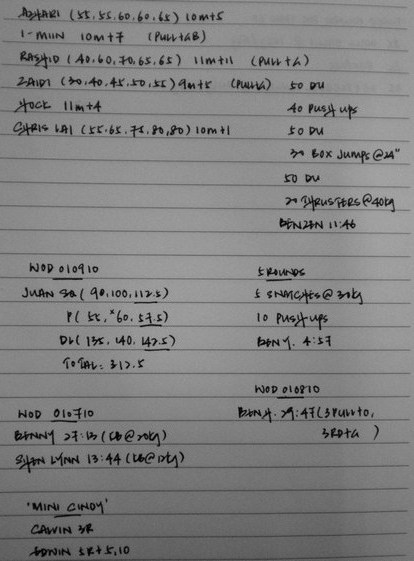 AZHARI (55,55,60,60,65) 10m+5
I-MIIN 10m+7 (PULL+GB)
RASHID (40,60,70,65,65) 11m+11 (PULL+G)
ZAIDI (30,40,45,50,55) 9m+5 (PULL+G)
HOCK 11m+4
CHRIS LAI (55,65,75,80,80) 10m+1
50 DU
40 PUSH UPS
50 DU
30 BOX JUMPS @24"
50 DU
20 THRUSTERS @40kg
BENZEN 11:46
WOD 010910
JUAN SQ (90,100,112.5)
P (55,*60,57.5)
DL (135,140,142.5)
TOTAL: 312.5
5 ROUNDS
5 SNATCHES @30kg
10 PUSH UPS
BENY. 4:57
WOD 010810
BENY. 29:47 (3PULL+O,
3RD+G )
WOD 010710
BENNY 27:13 (@20kg)
SHEN LYNN 13:44 (@12kg)
'MINI CINDY'
CALVIN 3R
EDWIN 5R+5,10